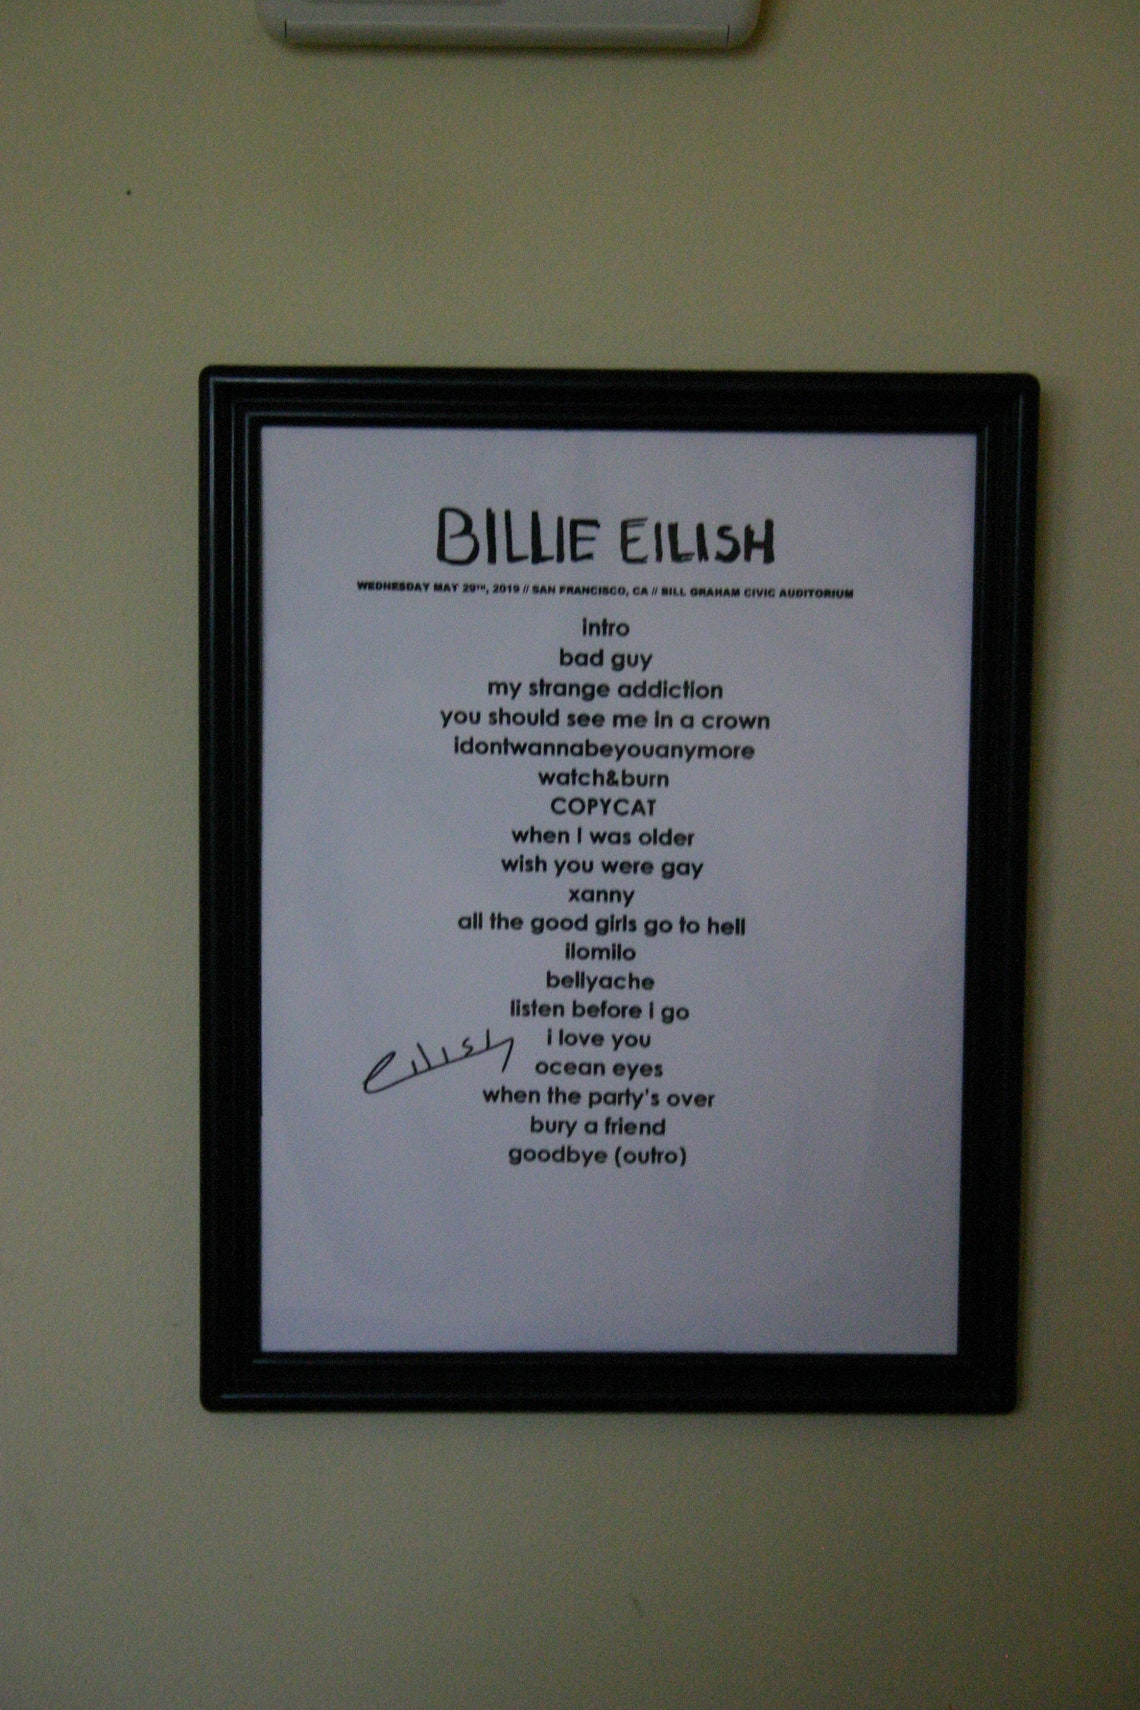 BILLIE EILISH
WEDNESDAY MAY 29TH, 2019 // SAN FRANCISCO, CA // BILL GRAHAM CIVIC AUDITORIUM
intro
bad guy
my strange addiction
you should see me in a crown
idontwannabeyouanymore
watch&burn
COPYCAT
when I was older
wish you were gay
xanny
all the good girls go to hell
ilomilo
bellyache
listen before i go
i love you
eilish
ocean eyes
when the party's over
bury a friend
goodbye (outro)